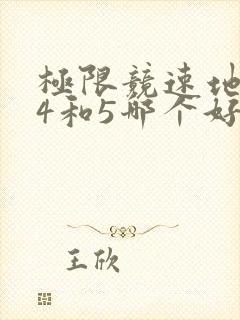 極限競速地
4和5哪个好
王欣